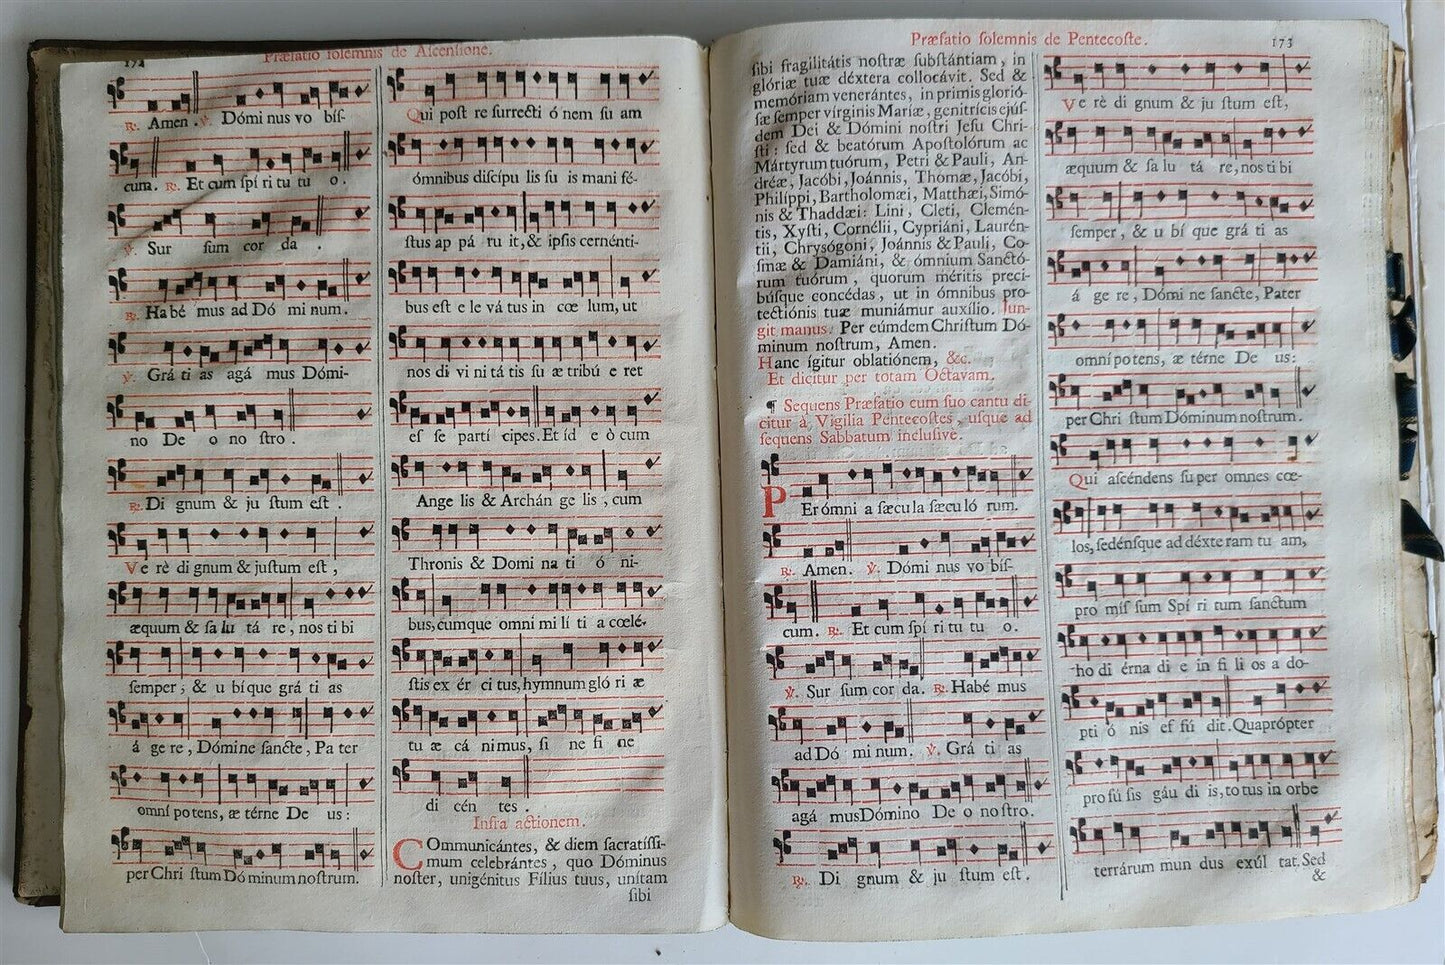 172
Præfatio ſolemnis de Aſcenſione.
℟. Amen. ℣. Dómi nus vo biſ-
cum. ℟. Et cum ſpí ri tu tu o.
℣. Sur ſum cor da.
℟. Ha bé mus ad Dó mi num.
℣. Grá ti as agá mus Dómi-
no De o no ſtro.
℟. Di gnum & ju ſtum eſt.
Ve rè di gnum & juſtum eſt,
æquum & ſa lu tá re, nos ti bi
ſemper, & u bi que grá ti as
á ge re, Dómi ne ſancte, Pa ter
omní po tens, æ térne De us:
per Chri ſtum Dó minum noſtrum.
Qui poſt re ſurrecti ó nem ſu am
ómnibus diſcípu lis ſu is mani fé-
ſtus ap pá ru it, & ipſis cernénti-
bus eſt e le vá tus in cœ lum, ut
nos di vi ni tá tis ſu æ tribú e ret
eſ ſe partí cipes. Et íd e ò cum
Ange lis & Archán ge lis, cum
Thronis & Domi na ti ó ni-
bus, cumque omni mi lí ti a cœlé-
ſtis ex ér ci tus, hymnum gló ri æ
tu æ cá nimus, ſi ne fi ne
di cén tes.
Infra actionem.
COmmunicántes, & diem ſacratíſſi-
mum celebrántes, quo Dóminus
noſter, unigénitus Fílius tuus, unítam
ſibi
Præfatio ſolemnis de Pentecoſte.
173
ſibi fragilitátis noſtræ ſubſtántiam, in
glóriæ tuæ déxtera collocávit. Sed &
memóriam venerántes, in primis glorió-
ſæ ſemper vírginis Maríæ, genitrícis ejúſ-
dem Dei & Dómini noſtri Jeſu Chri-
ſti: ſed & beatórum Apoſtolórum ac
Mártyrum tuórum, Petri & Pauli, An-
dréæ, Jacóbi, Joánnis, Thomæ, Jacóbi,
Philíppi, Bartholomæi, Matthæi, Simó-
nis & Thaddæi: Lini, Cleti, Clemén-
tis, Xyſti, Cornélii, Cypriáni, Laurén-
tii, Chrysógoni, Joánnis & Pauli, Co-
ſmæ & Damiáni, & ómnium Sanctó-
rum tuórum, quorum méritis preci-
búſque concédas, ut in ómnibus pro-
tectiónis tuæ muniámur auxílio. Jun-
git manus. Per eúmdem Chriſtum Dó-
minum noſtrum, Amen.
Hanc ígitur oblatiónem, &c.
Et dicitur per totam Octavam.
¶ Sequens Præfatio cum ſuo cantu di-
citur à Vigilia Pentecoſtes, uſque ad
ſequens Sabbatum incluſive.
PEr ómni a ſæcu la ſæcu ló rum.
℟. Amen. ℣. Dómi nus vo biſ-
cum. ℟. Et cum ſpí ri tu tu o.
℣. Sur ſum cor da. ℟. Habé mus
ad Dó mi num. ℣. Grá ti as
agá mus Dómino De o no ſtro.
℟. Di gnum & ju ſtum eſt.
Ve rè di gnum & ju ſtum eſt,
æquum & ſa lu tá re, nos ti bi
ſemper, & u bí que grá ti as
á ge re, Dómi ne ſancte, Pater
omní po tens, æ térne De us:
per Chri ſtum Dóminum noſtrum.
Qui aſcéndens ſu per omnes cœ-
los, ſedénſque ad déxte ram tu am,
pro míſ ſum Spí ri tum ſanctum
ho di érna di e in fí li os a do-
pti ó nis ef fú dit. Quaprópter
pro fú ſis gáu di is, to tus in orbe
terrárum mun dus exúl tat. Sed
&